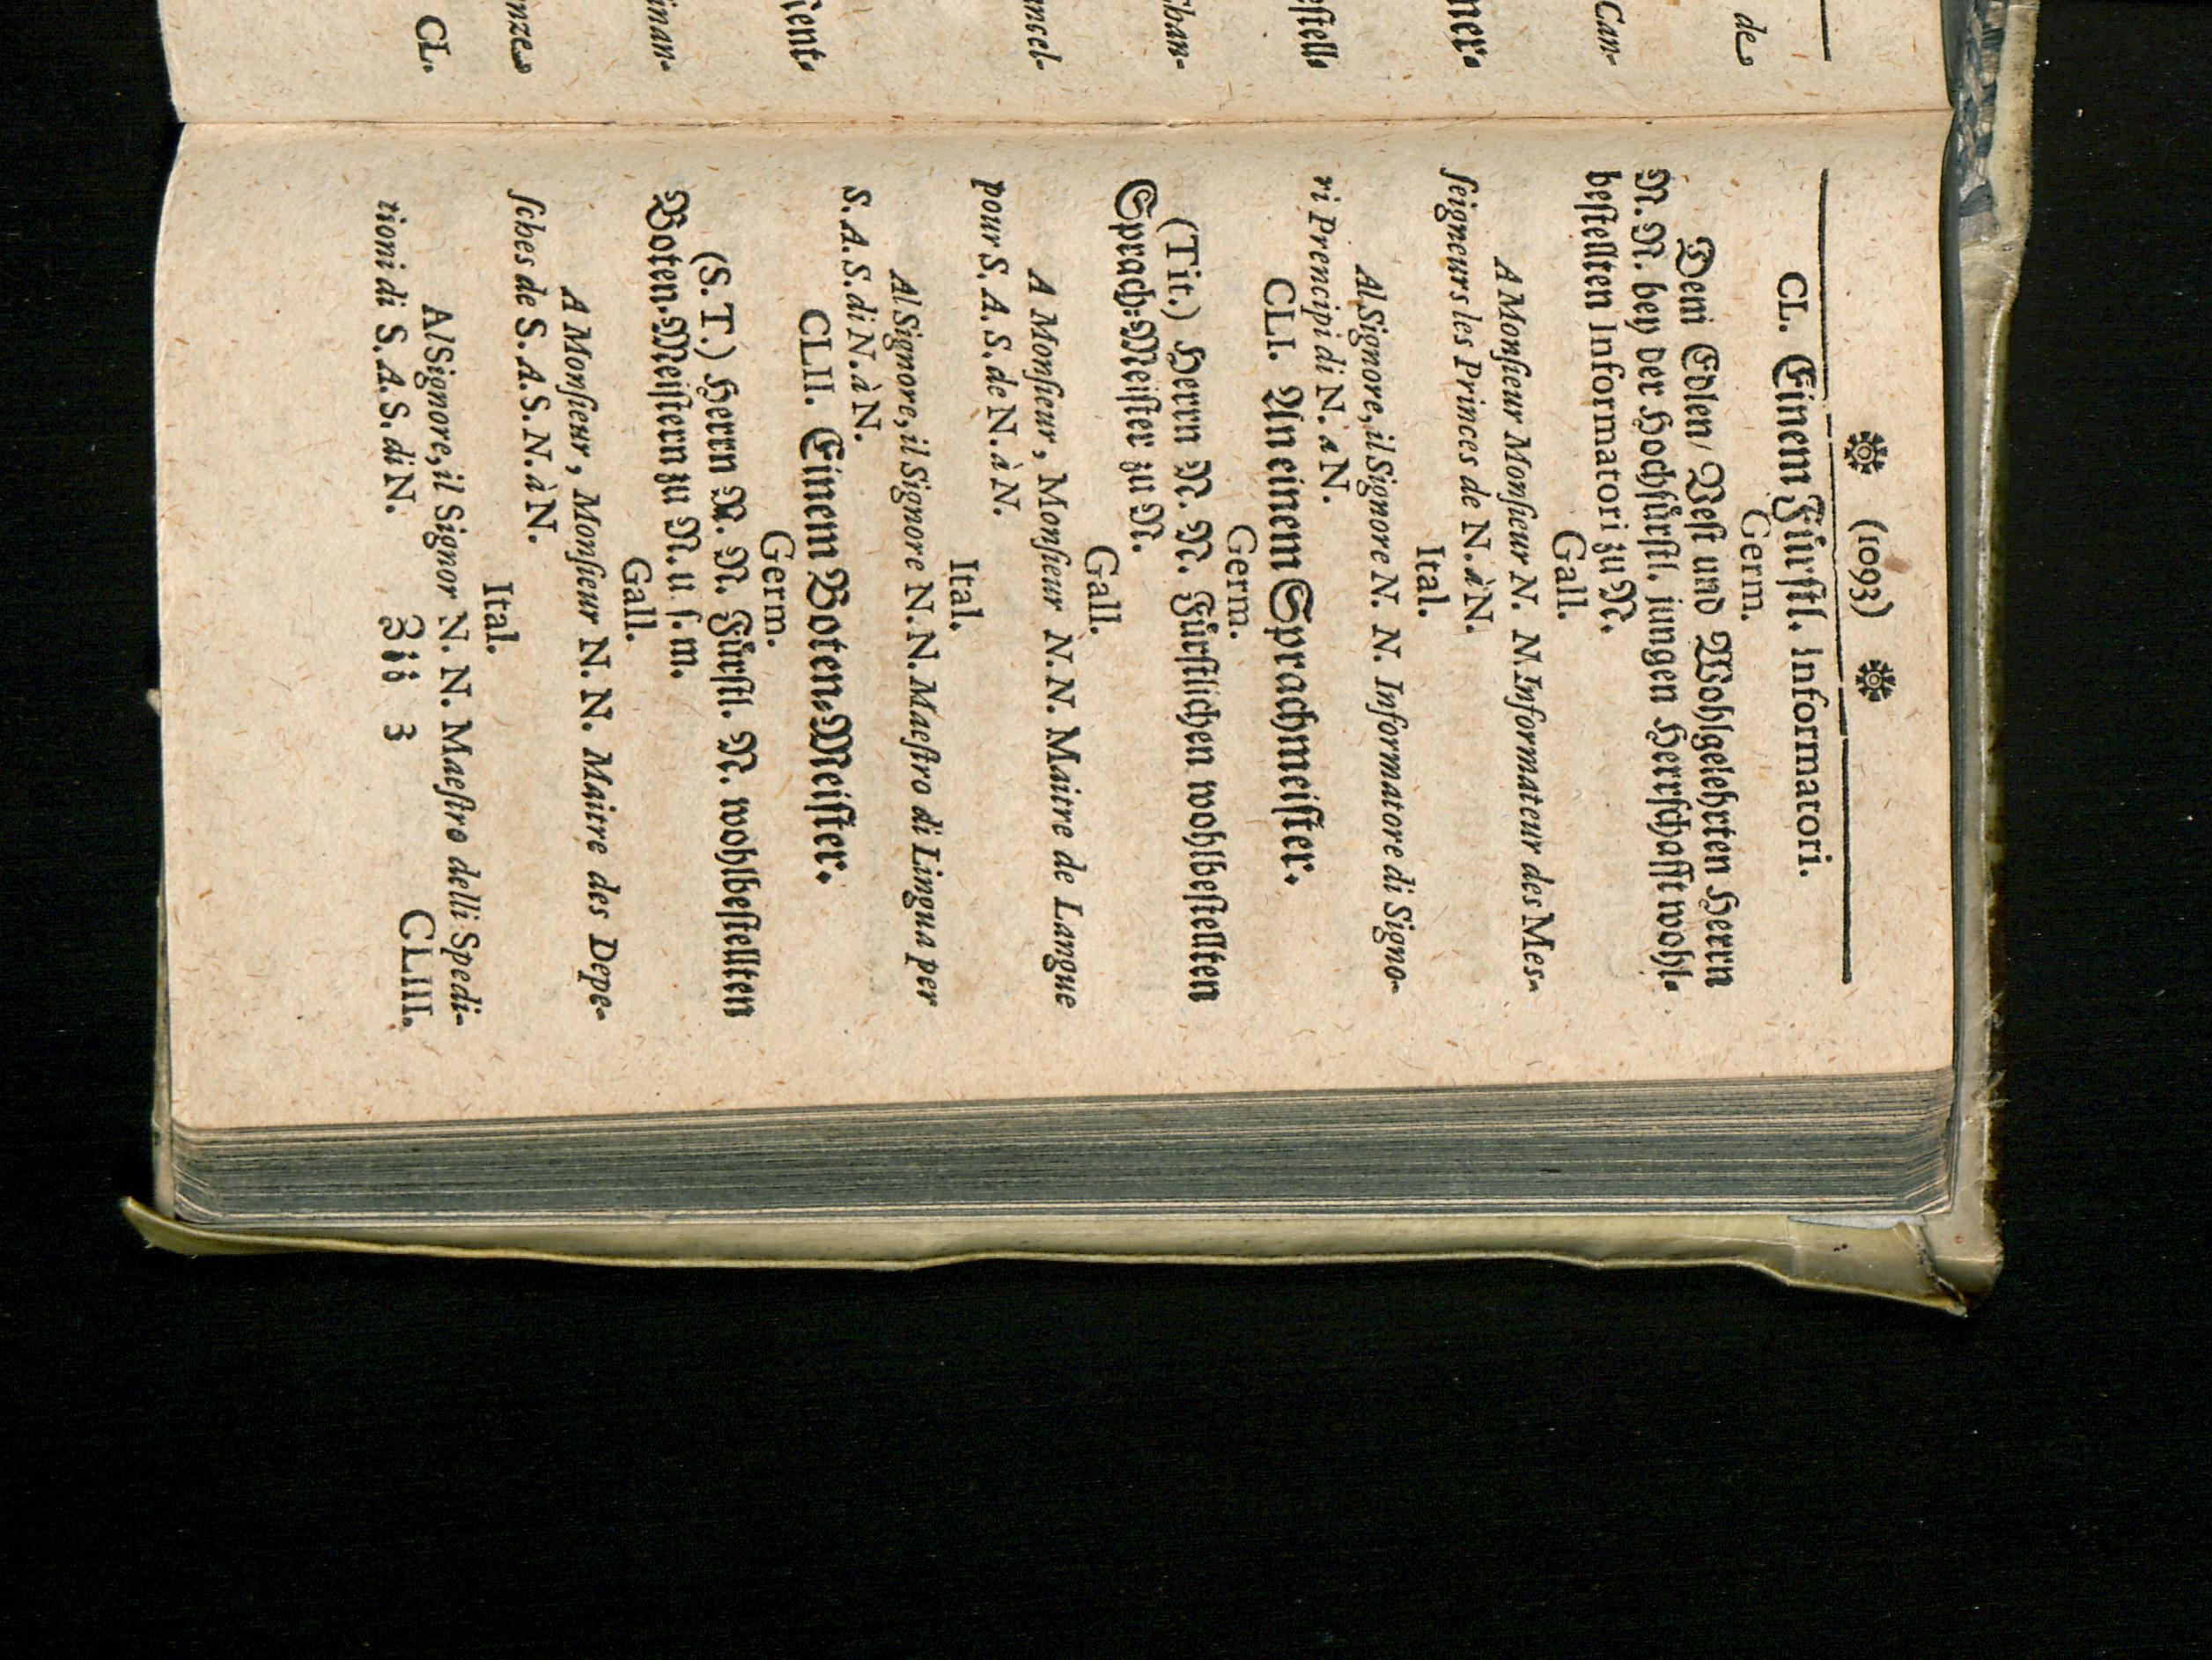 (1093)
CL. Einem Fürstl. Informatori.
Germ.
Dem Edlen/ Vest und Wohlgelehrten Herrn
N. N. bey der Hochfürstl. jungen Herrschafft wohl-
bestellten Informatori zu N.
Gall.
A Monsieur Monsieur N. N. Informateur des Mes-
seigneurs les Princes de N. à N.
Ital.
Al Signore, il Signore N. N. Informatore di Signo-
ri Prencipi di N. à N.
CLI. An einem Sprachmeister.
Germ.
(Tit.) Herrn N. N. Fürstlichen wohlbestellten
Sprach-Meister zu N.
Gall.
A Monsieur, Monsieur N. N. Maitre de Langue
pour S. A. S. de N. à N.
Ital.
Al Signore, il Signore N. N. Maestro di Lingua per
S. A. S. di N. à N.
CLII. Einem Boten-Meister.
Germ.
(S. T.) Herrn N. N. Fürstl. N. wohlbestellten
Boten-Meistern zu N. u. s. m.
Gall.
A Monsieur, Monsieur N. N. Maitre des Depe-
sches de S. A. S. N. à N.
Ital.
Al Signore, il Signor N. N. Maestro delli Spedi-
tioni di S. A. S. di N.
3
CLIII.
de
Can-
mer-
estell-
ban-
ancel-
Rent-
inan-
nze
CL.